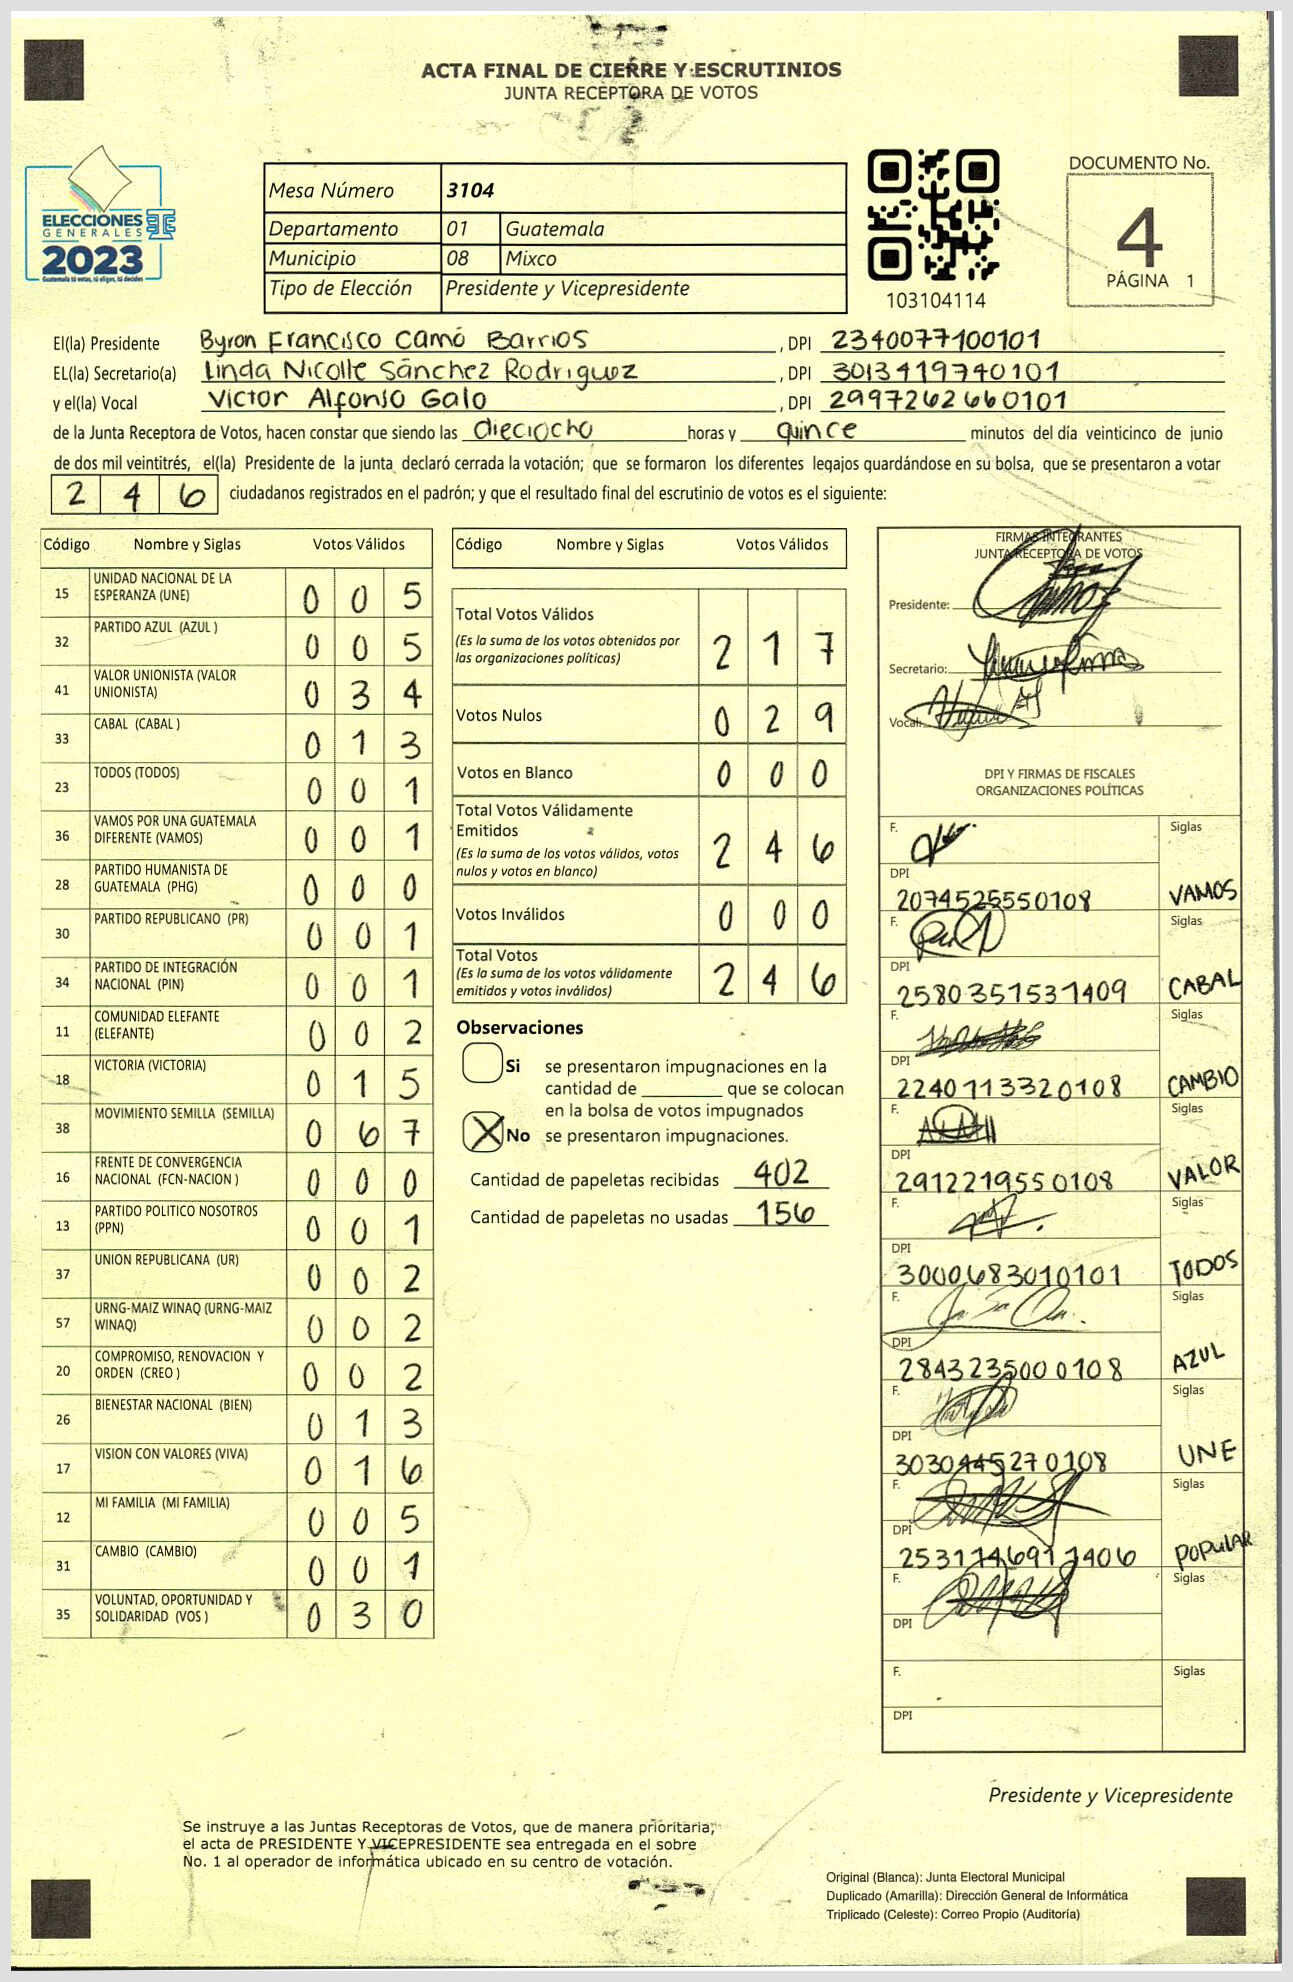 ACTA FINAL DE CIERRE Y ESCRUTINIOS
JUNTA RECEPTORA DE VOTOS
ELECCIONES
GENERALES
2023
Guatemala tú votas, tú eliges, tú decides
Mesa Número 3104
Departamento 01 Guatemala
Municipio 08 Mixco
Tipo de Elección Presidente y Vicepresidente
103104114
DOCUMENTO No.
4
PÁGINA 1
El(la) Presidente Byron Francisco Camó Barrios , DPI 2340077100101
EL(la) Secretario(a) Linda Nicolle Sánchez Rodriguez , DPI 3013419740101
y el(la) Vocal Victor Alfonso Galo , DPI 2997262660101
de la Junta Receptora de Votos, hacen constar que siendo las dieciocho horas y quince minutos del día veinticinco de junio
de dos mil veintitrés, el(la) Presidente de la junta declaró cerrada la votación; que se formaron los diferentes legajos guardándose en su bolsa, que se presentaron a votar
2 4 6 ciudadanos registrados en el padrón; y que el resultado final del escrutinio de votos es el siguiente:
Código Nombre y Siglas Votos Válidos
15 UNIDAD NACIONAL DE LA ESPERANZA (UNE) 0 0 5
32 PARTIDO AZUL (AZUL ) 0 0 5
41 VALOR UNIONISTA (VALOR UNIONISTA) 0 3 4
33 CABAL (CABAL ) 0 1 3
23 TODOS (TODOS) 0 0 1
36 VAMOS POR UNA GUATEMALA DIFERENTE (VAMOS) 0 0 1
28 PARTIDO HUMANISTA DE GUATEMALA (PHG) 0 0 0
30 PARTIDO REPUBLICANO (PR) 0 0 1
34 PARTIDO DE INTEGRACIÓN NACIONAL (PIN) 0 0 1
11 COMUNIDAD ELEFANTE (ELEFANTE) 0 0 2
18 VICTORIA (VICTORIA) 0 1 5
38 MOVIMIENTO SEMILLA (SEMILLA) 0 6 7
16 FRENTE DE CONVERGENCIA NACIONAL (FCN-NACION ) 0 0 0
13 PARTIDO POLITICO NOSOTROS (PPN) 0 0 1
37 UNION REPUBLICANA (UR) 0 0 2
57 URNG-MAIZ WINAQ (URNG-MAIZ WINAQ) 0 0 2
20 COMPROMISO, RENOVACION Y ORDEN (CREO ) 0 0 2
26 BIENESTAR NACIONAL (BIEN) 0 1 3
17 VISION CON VALORES (VIVA) 0 1 6
12 MI FAMILIA (MI FAMILIA) 0 0 5
31 CAMBIO (CAMBIO) 0 0 1
35 VOLUNTAD, OPORTUNIDAD Y SOLIDARIDAD (VOS ) 0 3 0
Código Nombre y Siglas Votos Válidos
Total Votos Válidos 2 1 7
(Es la suma de los votos obtenidos por
las organizaciones políticas)
Votos Nulos 0 2 9
Votos en Blanco 0 0 0
Total Votos Válidamente
Emitidos 2 4 6
(Es la suma de los votos válidos, votos
nulos y votos en blanco)
Votos Inválidos 0 0 0
Total Votos 2 4 6
(Es la suma de los votos válidamente
emitidos y votos inválidos)
Observaciones
Si se presentaron impugnaciones en la
cantidad de ________ que se colocan
en la bolsa de votos impugnados
X No se presentaron impugnaciones.
Cantidad de papeletas recibidas 402
Cantidad de papeletas no usadas 156
FIRMAS INTEGRANTES
JUNTA RECEPTORA DE VOTOS
Presidente:
Secretario:
Vocal:
DPI Y FIRMAS DE FISCALES
ORGANIZACIONES POLÍTICAS
F. Siglas
DPI
2074525550108 VAMOS
F. Siglas
DPI
2580351531409 CABAL
F. Siglas
DPI
2240713320108 CAMBIO
F. Siglas
DPI
2912219550108 VALOR
F. Siglas
DPI
3000683010101 TODOS
F. Siglas
DPI
2843235000108 AZUL
F. Siglas
DPI
3030445270108 UNE
F. Siglas
DPI
POPULAR
F. Siglas
DPI
F. Siglas
DPI
Presidente y Vicepresidente
Se instruye a las Juntas Receptoras de Votos, que de manera prioritaria,
el acta de PRESIDENTE Y VICEPRESIDENTE sea entregada en el sobre
No. 1 al operador de informática ubicado en su centro de votación.
Original (Blanca): Junta Electoral Municipal
Duplicado (Amarilla): Dirección General de Informática
Triplicado (Celeste): Correo Propio (Auditoría)